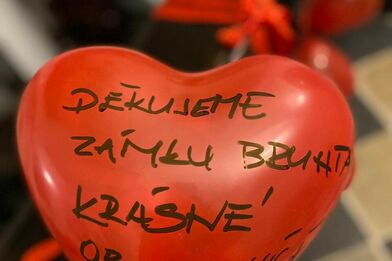 DĚKUJEME
ZÁMKU BRUNTÁ
KRÁSNÉ
OB